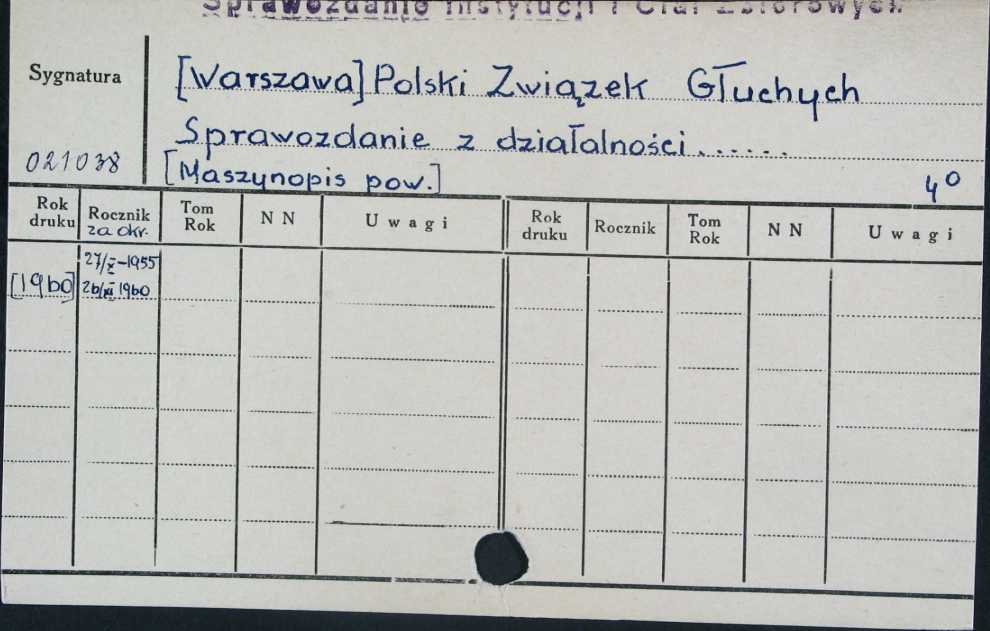 Sprawozdanie Instytucji i Ciał Zbiorowych
Sygnatura
[Warszawa] Polski Związek Głuchych
Sprawozdanie z działalności......
021038
[Maszynopis pow.]
4°
Rok druku
Rocznik za okr.
Tom Rok
N N
Uwagi
Rok druku
Rocznik
Tom Rok
N N
Uwagi
27/X-1955
[1960]
26/XI 1960